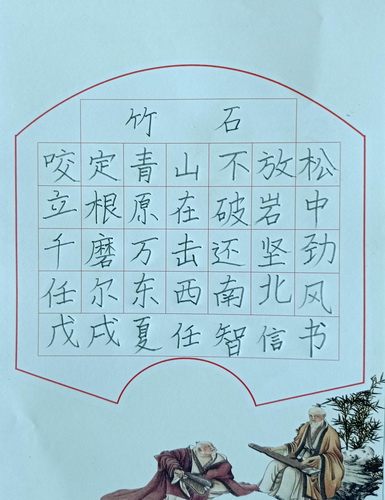 竹石
咬定青山不放松
立根原在破岩中
千磨万击还坚劲
任尔东西南北风
戊戌夏任智信书